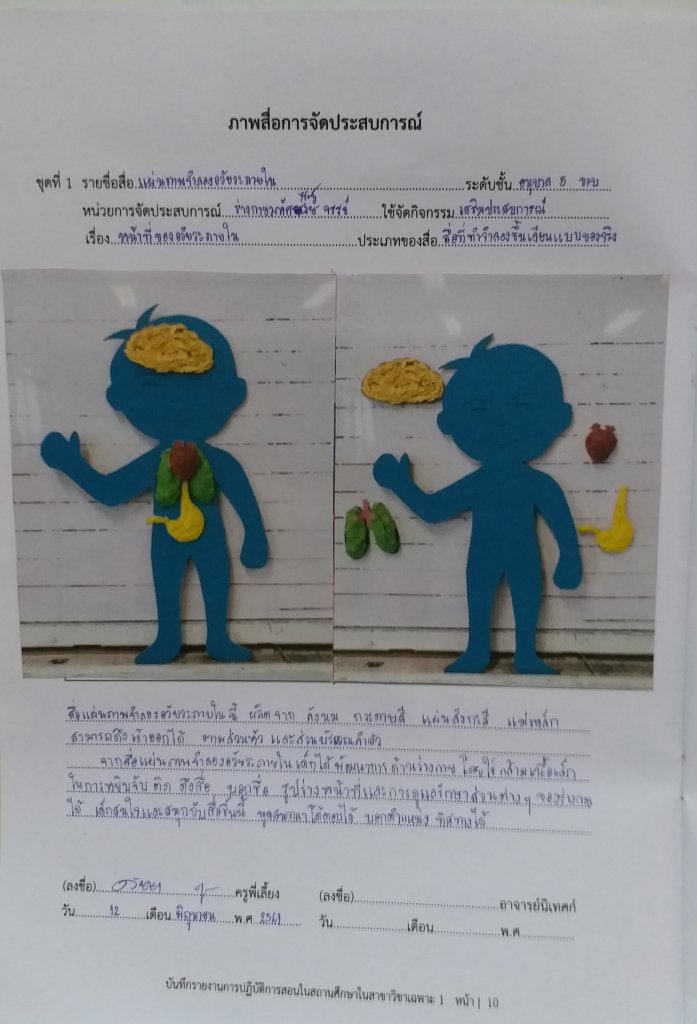 ภาพสื่อการจัดประสบการณ์
ชุดที่ 1 รายชื่อสื่อ แผ่นภาพจำลองอวัยวะภายใน ระดับชั้น อนุบาล 5 ขวบ
หน่วยการจัดประสบการณ์ ร่างกายมหัศจรรย์ ใช้จัดกิจกรรม เสริมประสบการณ์
เรื่อง หน้าที่ของอวัยวะภายใน ประเภทของสื่อ สื่อที่ทำจำลองขึ้นเลียนแบบของจริง
สื่อแผ่นภาพจำลองอวัยวะภายในนี้ ผลิตจาก ลังนม กระดาษสี แผ่นสังกะสี แม่เหล็ก
สามารถดึงเข้าออกได้ ตามส่วนหัว และส่วนบริเวณลำตัว
จากสื่อแผ่นภาพจำลองอวัยวะภายใน เด็กได้พัฒนาการด้านร่างกาย โดยใช้กล้ามเนื้อเล็ก
ในการหยิบจับ ติด ดึงสื่อ บอกชื่อ รูปร่างหน้าที่และการดูแลรักษาส่วนต่างๆ ของร่างกาย
ได้ เด็กสนใจและสนุกกับสื่อชิ้นนี้ พูดสนทนาโต้ตอบได้ บอกตำแหน่ง ทิศทางได้
(ลงชื่อ) ครูพี่เลี้ยง (ลงชื่อ) อาจารย์นิเทศก์
วัน 12 เดือน มิถุนายน พ.ศ. 2561 วัน เดือน พ.ศ.
บันทึกรายงานการปฏิบัติการสอนในสถานศึกษาในสาขาวิชาเฉพาะ 1 หน้า | 10